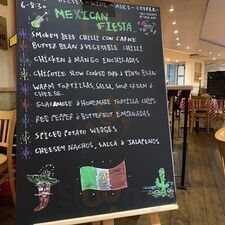 BEER - WINE - ALES - COFFEE
6-8:30
MEXICAN
FIESTA
SMOKEY BEEF CHILLI CON CARNE
BUTTER BEAN & VEGETABLE CHILLI
CHICKEN & MANGO ENCHILADAS
CHIPOTLE SLOW COOKED PORK & PINTO BEAN
WARM TORTILLAS, SALSA, SOUR CREAM &
CHEESE
GUACAMOLE & HOMEMADE TORTILLA CHIPS
RED PEPPER & BUTTERNUT EMPANADAS
SPICED POTATO WEDGES
CHEESEY NACHOS, SALSA & JALAPENOS